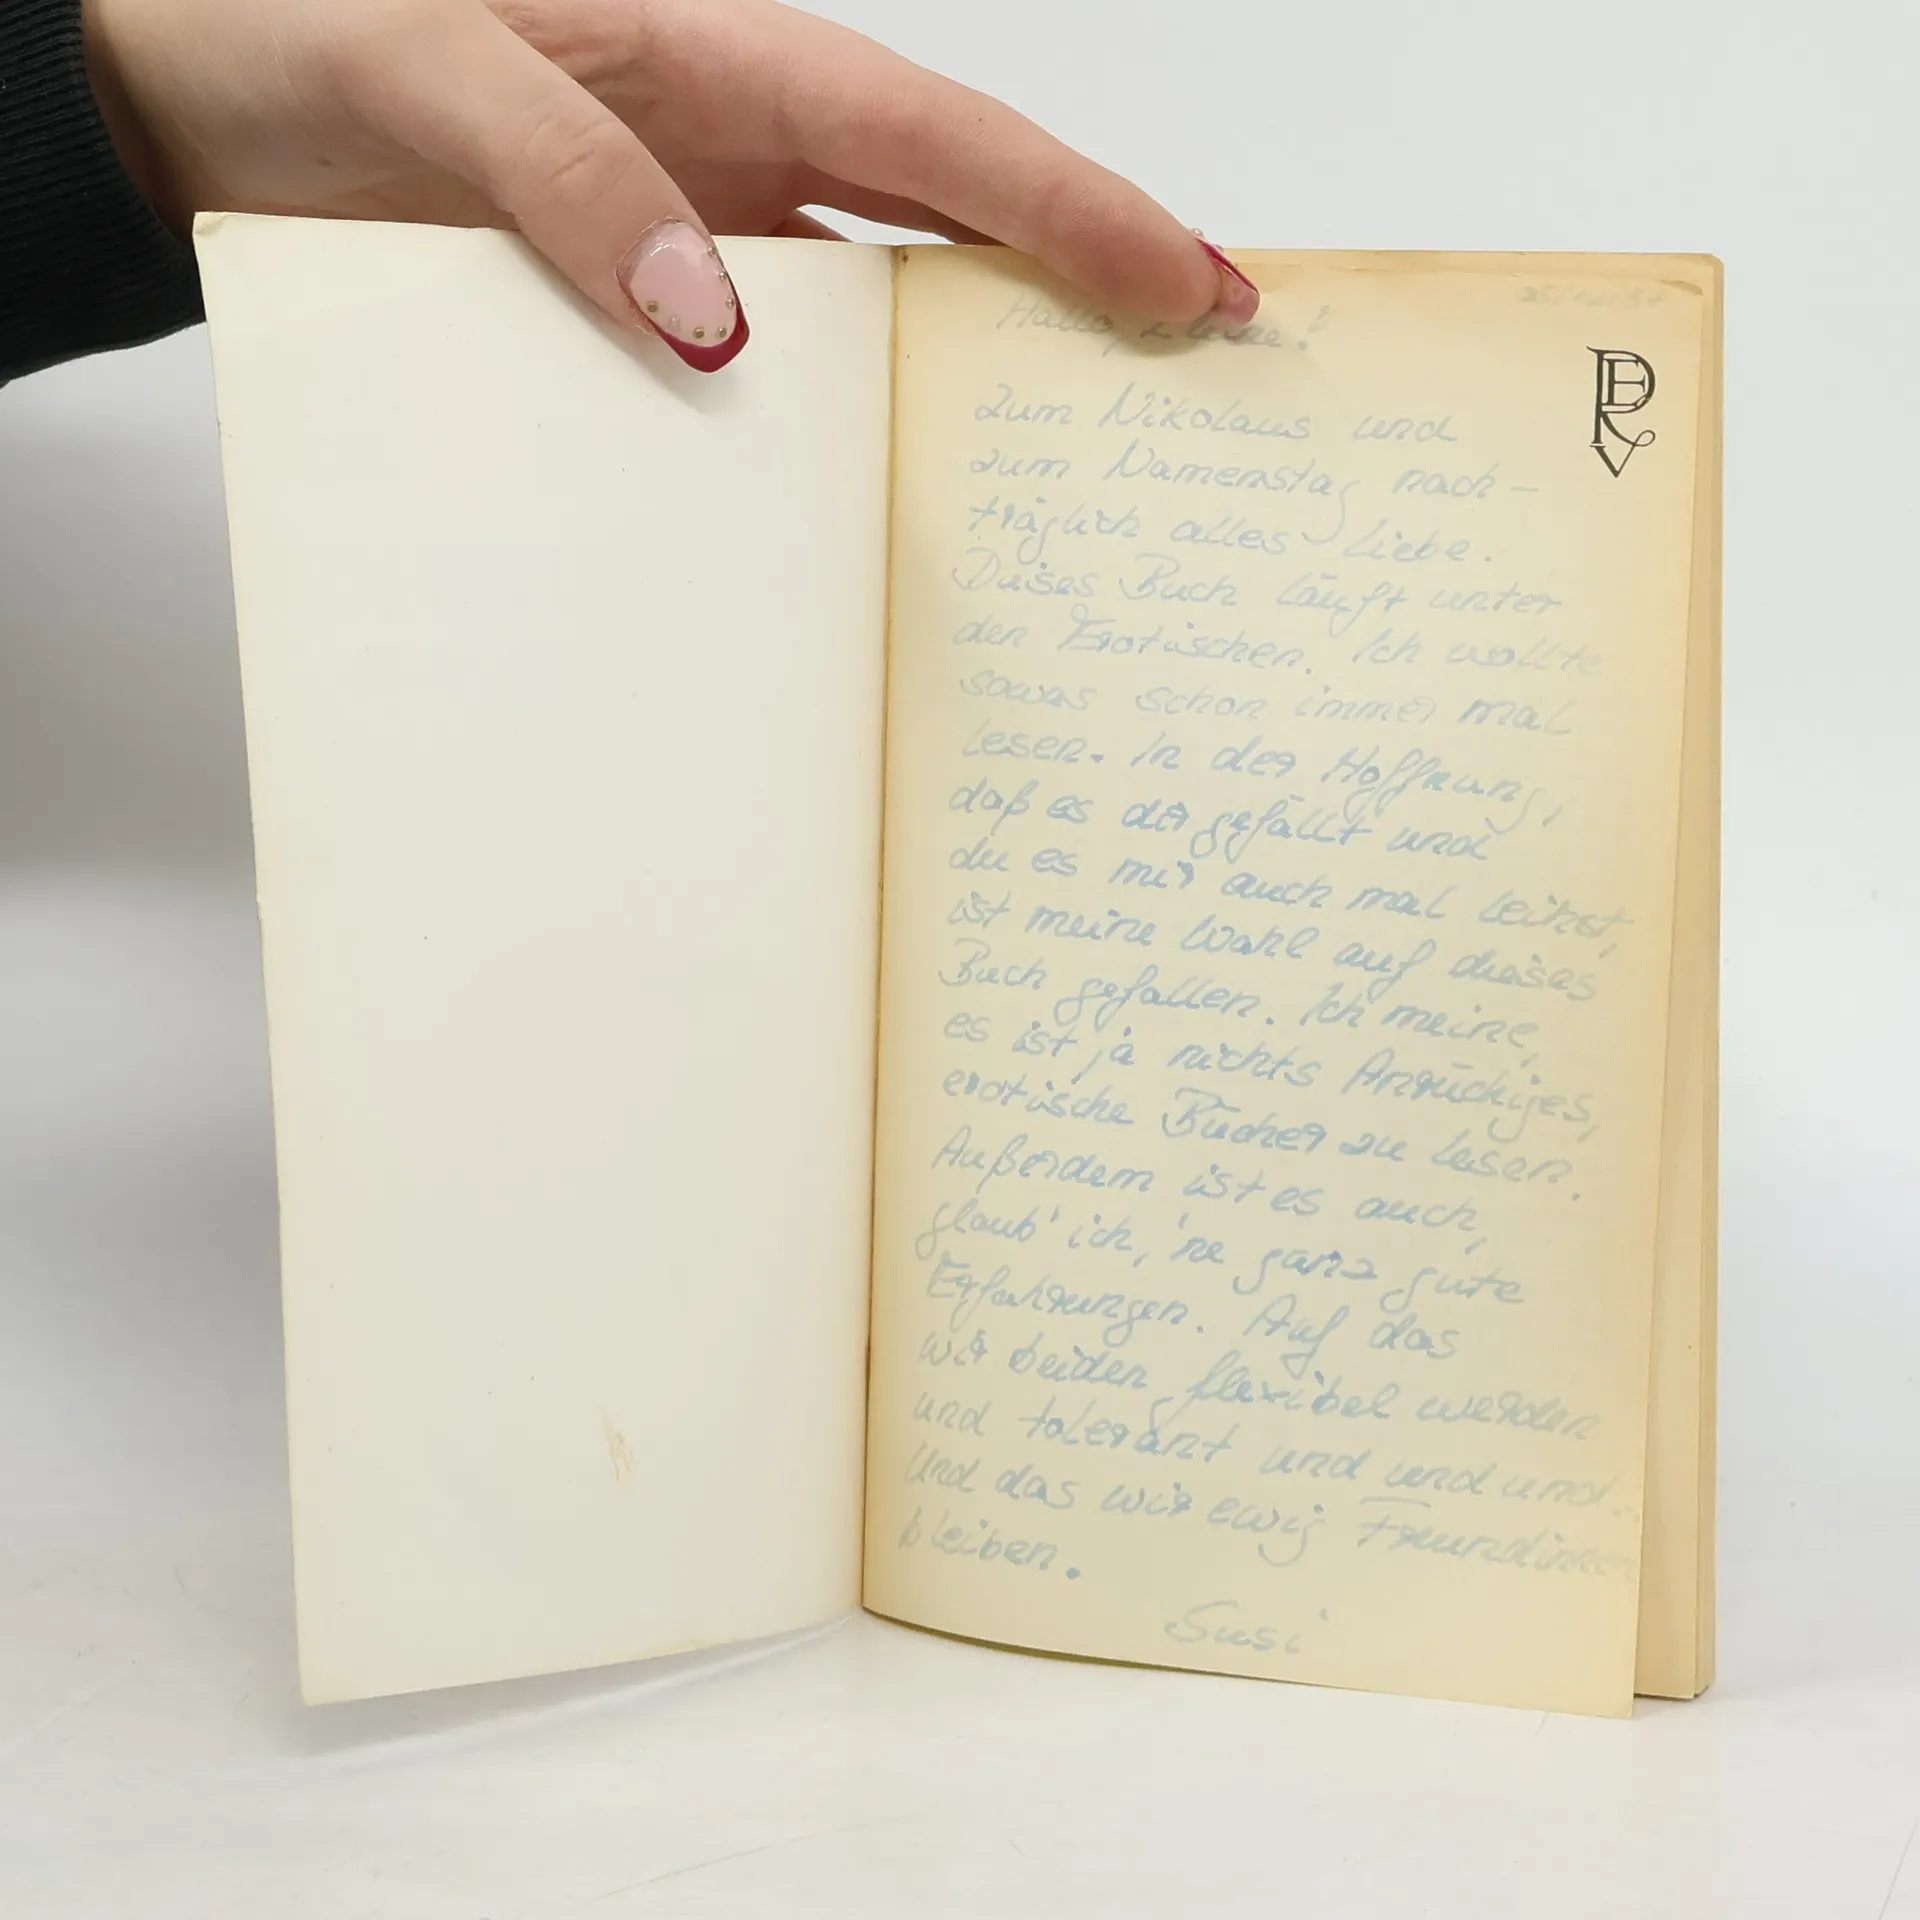 Hallo,
Zum Nikolaus und
zum Namenstag nach-
träglich alles Liebe.
Dieses Buch läuft unter
den Erotischen. Ich wollte
sowas schon immer mal
lesen. In der Hoffnung,
daß es dir gefällt und
du es mir auch mal leihst,
ist meine Wahl auf dieses
Buch gefallen. Ich meine,
es ist ja nichts Anrüchiges,
erotische Bücher zu lesen.
Außerdem ist es auch,
glaub' ich, 'ne ganz gute
Erfahrungen. Auf das
wir beiden flexibel werden
und tolerant und und und...
Und das wir ewig Freundinnen
bleiben.
Susi